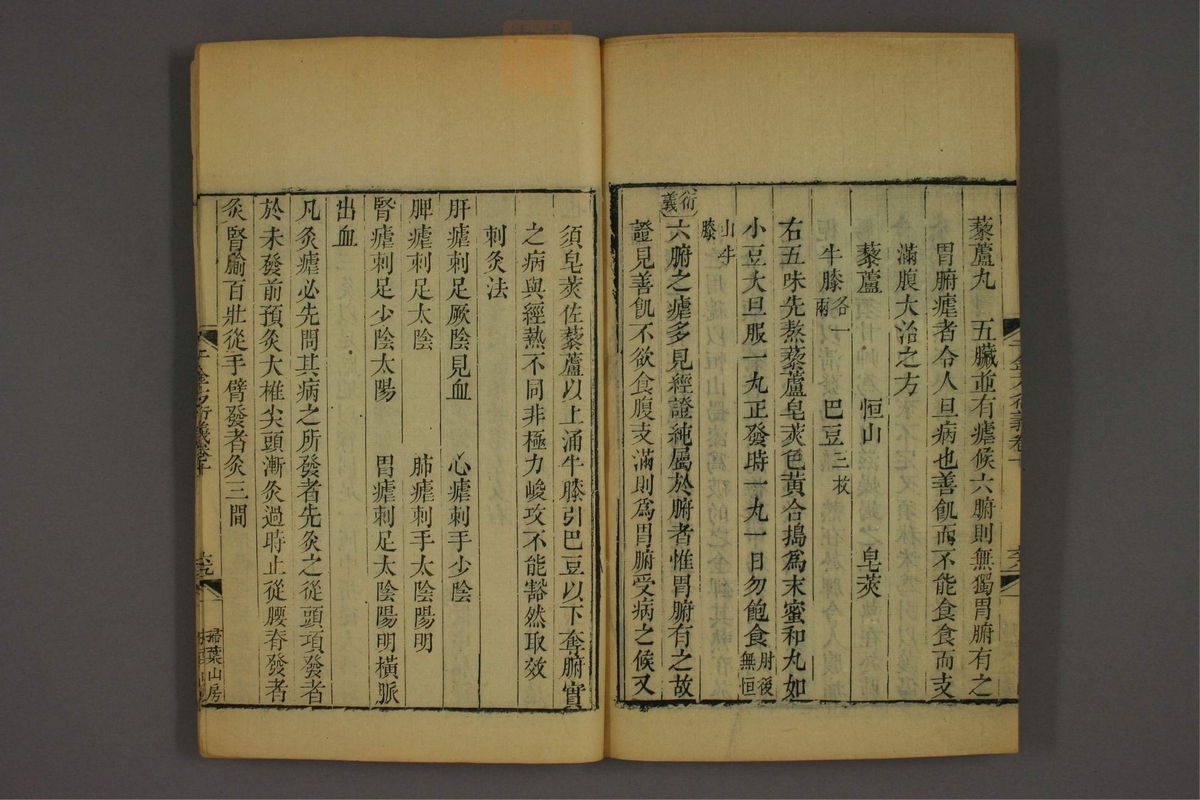 藜蘆丸　五臟並有瘧候六腑則無獨胃腑有之
胃腑瘧者令人旦病也善飢而不能食食而支
滿腹大治之方
藜蘆　恒山　皂莢
牛膝各一兩　巴豆三枚
右五味先熬藜蘆皂莢色黃合搗為末蜜和丸如
小豆大旦服一丸正發時一丸一日勿飽食肘後無恒
山牛膝
衍義
六腑之瘧多見經證純屬於腑者惟胃腑有之故
證見善飢不欲食腹支滿則為胃腑受病之候又
須皂莢佐藜蘆以上涌牛膝引巴豆以下奪腑實
之病與經熱不同非極力峻攻不能豁然取效
刺灸法
肝瘧刺足厥陰見血　心瘧刺手少陰
脾瘧刺足太陰　肺瘧刺手太陰陽明
腎瘧刺足少陰太陽　胃瘧刺足太陰陽明橫脈
出血
凡灸瘧必先問其病之所發者先灸之從頭項發者
於未發前預灸大椎尖頭漸灸過時止從腰脊發者
灸腎腧百壯從手臂發者灸三間
掃葉山房